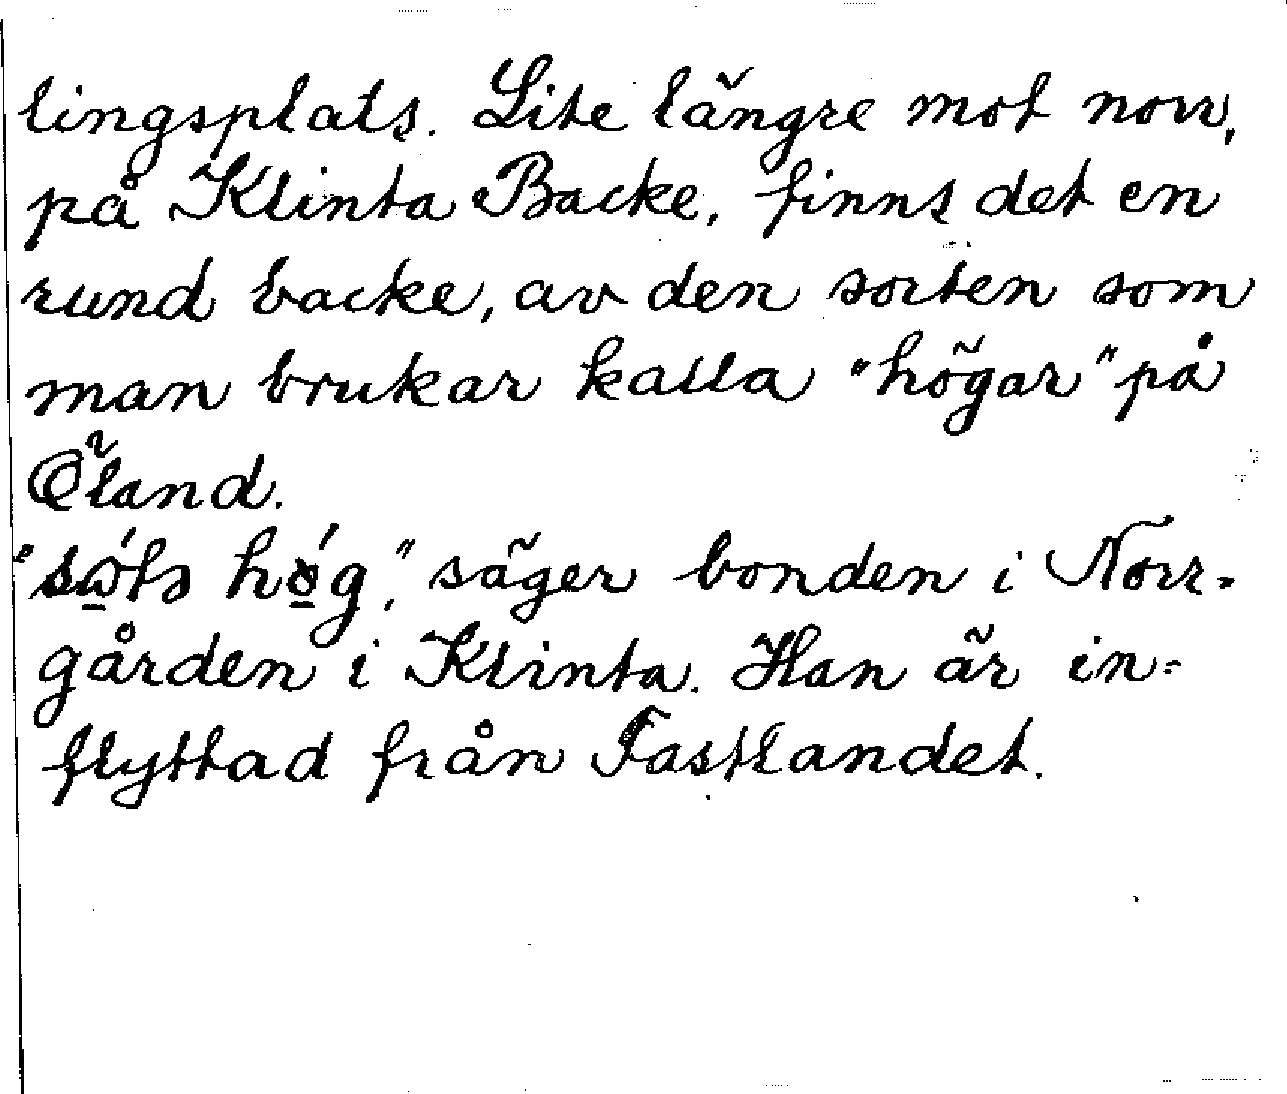 lingsplats. Lite längre mot norr,
på Klinta Backe, finns det en
rund backe, av den sorten som
man brukar kalla "högar" på
Öland.
hög," säger bonden i Norr-
gården i Klinta. Han är in-
flyttad från Fastlandet.